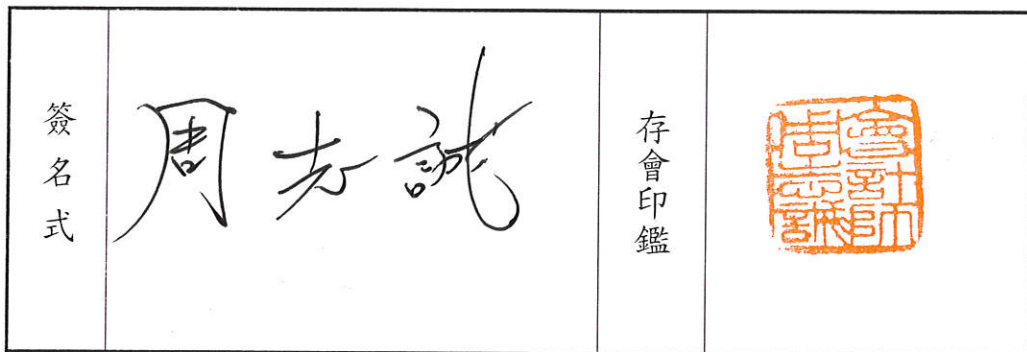 簽名式
周志誠
存會印鑑
會計師
周志誠